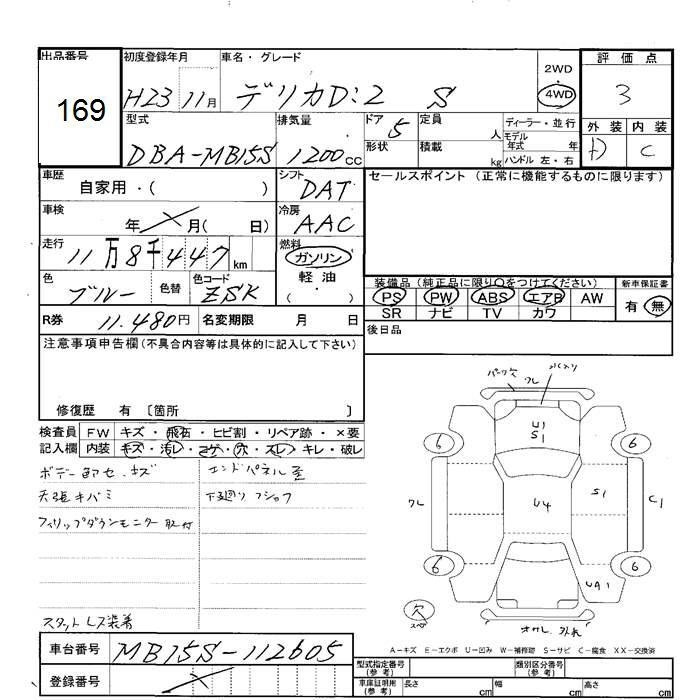 出品番号 初度登録年月 車名・グレード 2WD 評価点
169 H23 11月 デリカD:2 S 4WD 3
型式 排気量 ドア 5 定員 人 ディーラー・並行 外装 内装
DBA-MB15S 1200cc 形状 積載 kg モデル年式 年 ハンドル 左・右 D C
車歴 シフト セールスポイント(正常に機能するものに限ります)
自家用・( ) DAT
車検 冷房
年 月( 日) AAC
走行 燃料
11万8千447km ガソリン
色 色替 色コード 軽油
ブルー ZSK ( ・ )
装備品(純正品に限り〇をつけてください) 新車保証書
PS PW ABS エアB AW 有 無
SR ナビ TV カワ
R券 11.480円 名変期限 月 日
後日品
注意事項申告欄(不具合内容等は具体的に記入して下さい)
修復歴 有 〔箇所 〕
検査員 FW キズ・飛石・ヒビ割・リペア跡・×要
記入欄 内装 キズ・汚レ・コゲ・穴・スレ・キレ・破レ
ボデー キズ
エンドパネル
天張キバミ
下廻り
フィリップダウンモニター取付
スタットレス装着
ワレ
U1
S1
6 6
ワレ U4 S1 C1
6 6
UA1
欠
外れ
A-キズ E-エクボ U-凹み W-補修跡 S-サビ C-腐食 XX-交換済
車台番号 MB15S-112605
登録番号
型式指定番号(参考) 類別区分番号(参考)
車庫証明用(参考) 長さ cm 幅 cm 高さ cm